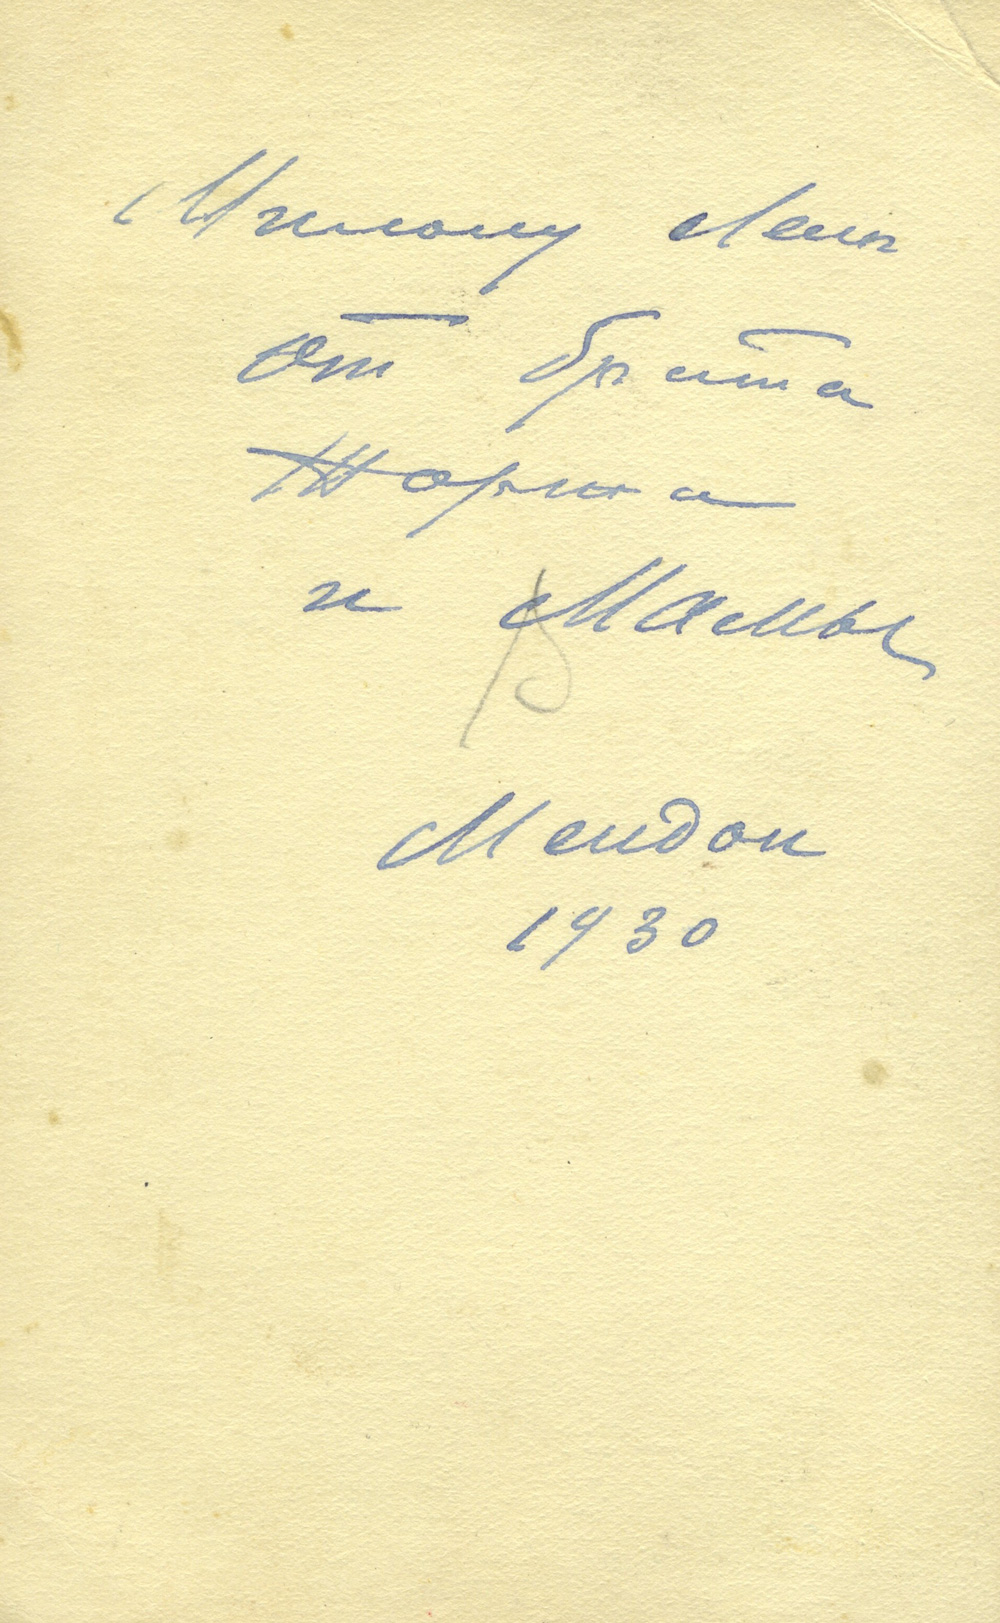 Милому Лене
от брата
Жоржа
и Мамы
Медон
1930